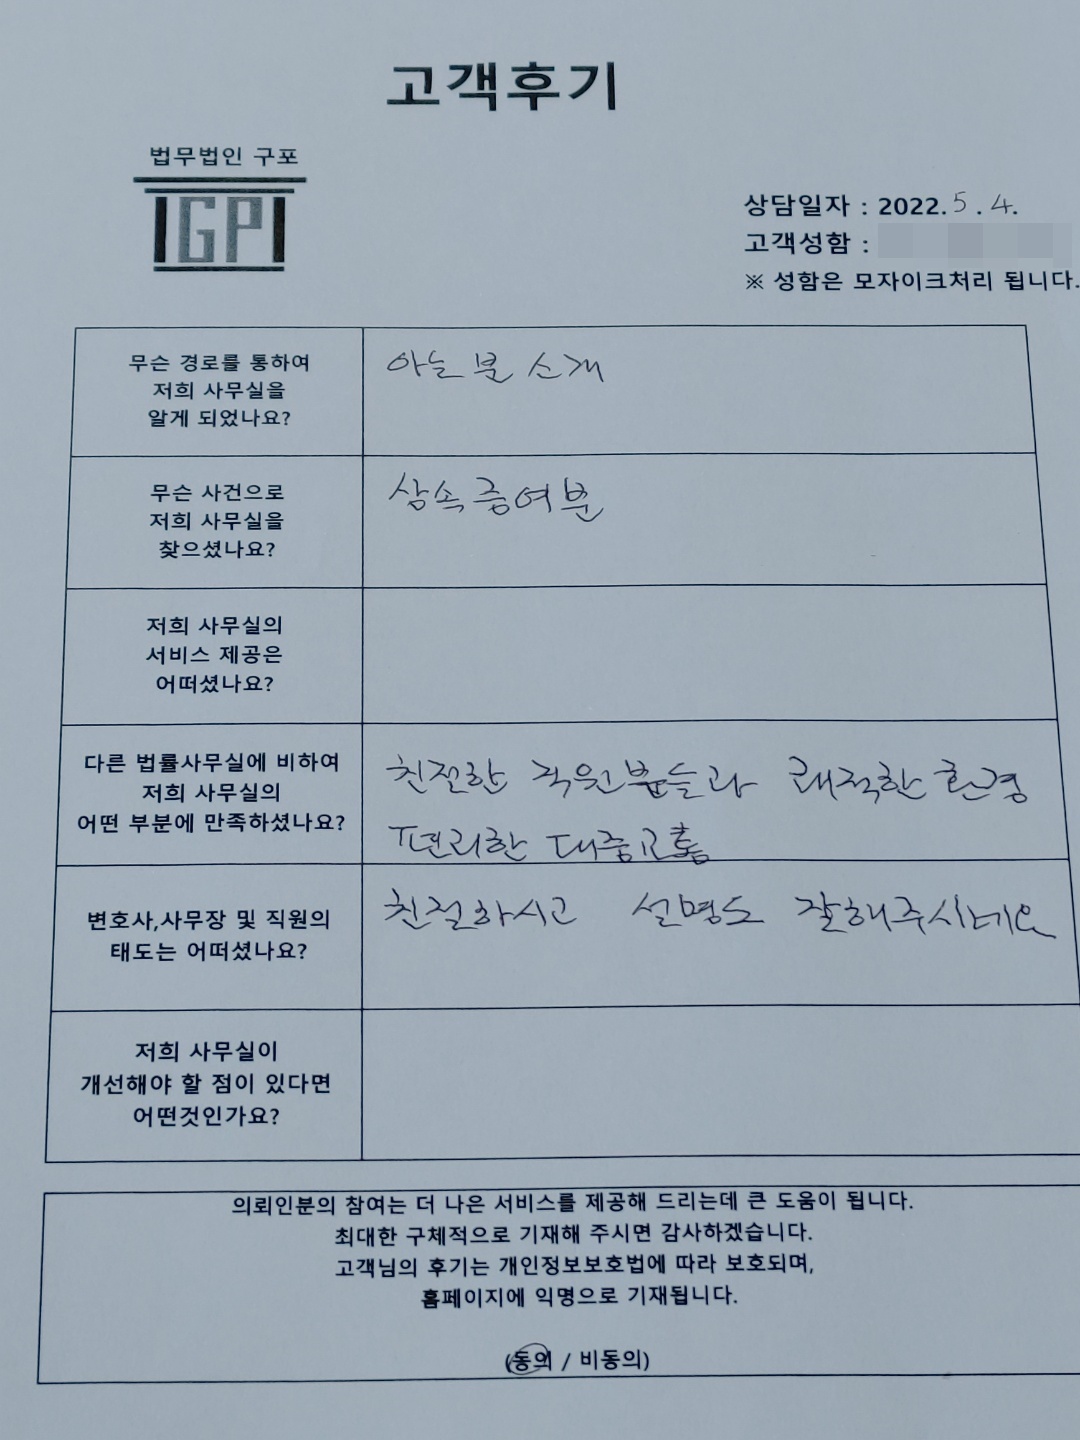 고객후기
법무법인 구포
IGPI
상담일자 : 2022. 5. 4.
고객성함 :
※ 성함은 모자이크처리 됩니다.
무슨 경로를 통하여
저희 사무실을
알게 되었나요?
아는 분 소개
무슨 사건으로
저희 사무실을
찾으셨나요?
상속증여분
저희 사무실의
서비스 제공은
어떠셨나요?
다른 법률사무실에 비하여
저희 사무실의
어떤 부분에 만족하셨나요?
친절한 직원분들과 쾌적한 환경
편리한 대중교통
변호사,사무장 및 직원의
태도는 어떠셨나요?
친절하시고 설명도 잘해주시네요
저희 사무실이
개선해야 할 점이 있다면
어떤것인가요?
의뢰인분의 참여는 더 나은 서비스를 제공해 드리는데 큰 도움이 됩니다.
최대한 구체적으로 기재해 주시면 감사하겠습니다.
고객님의 후기는 개인정보보호법에 따라 보호되며,
홈페이지에 익명으로 기재됩니다.
(동의 / 비동의)